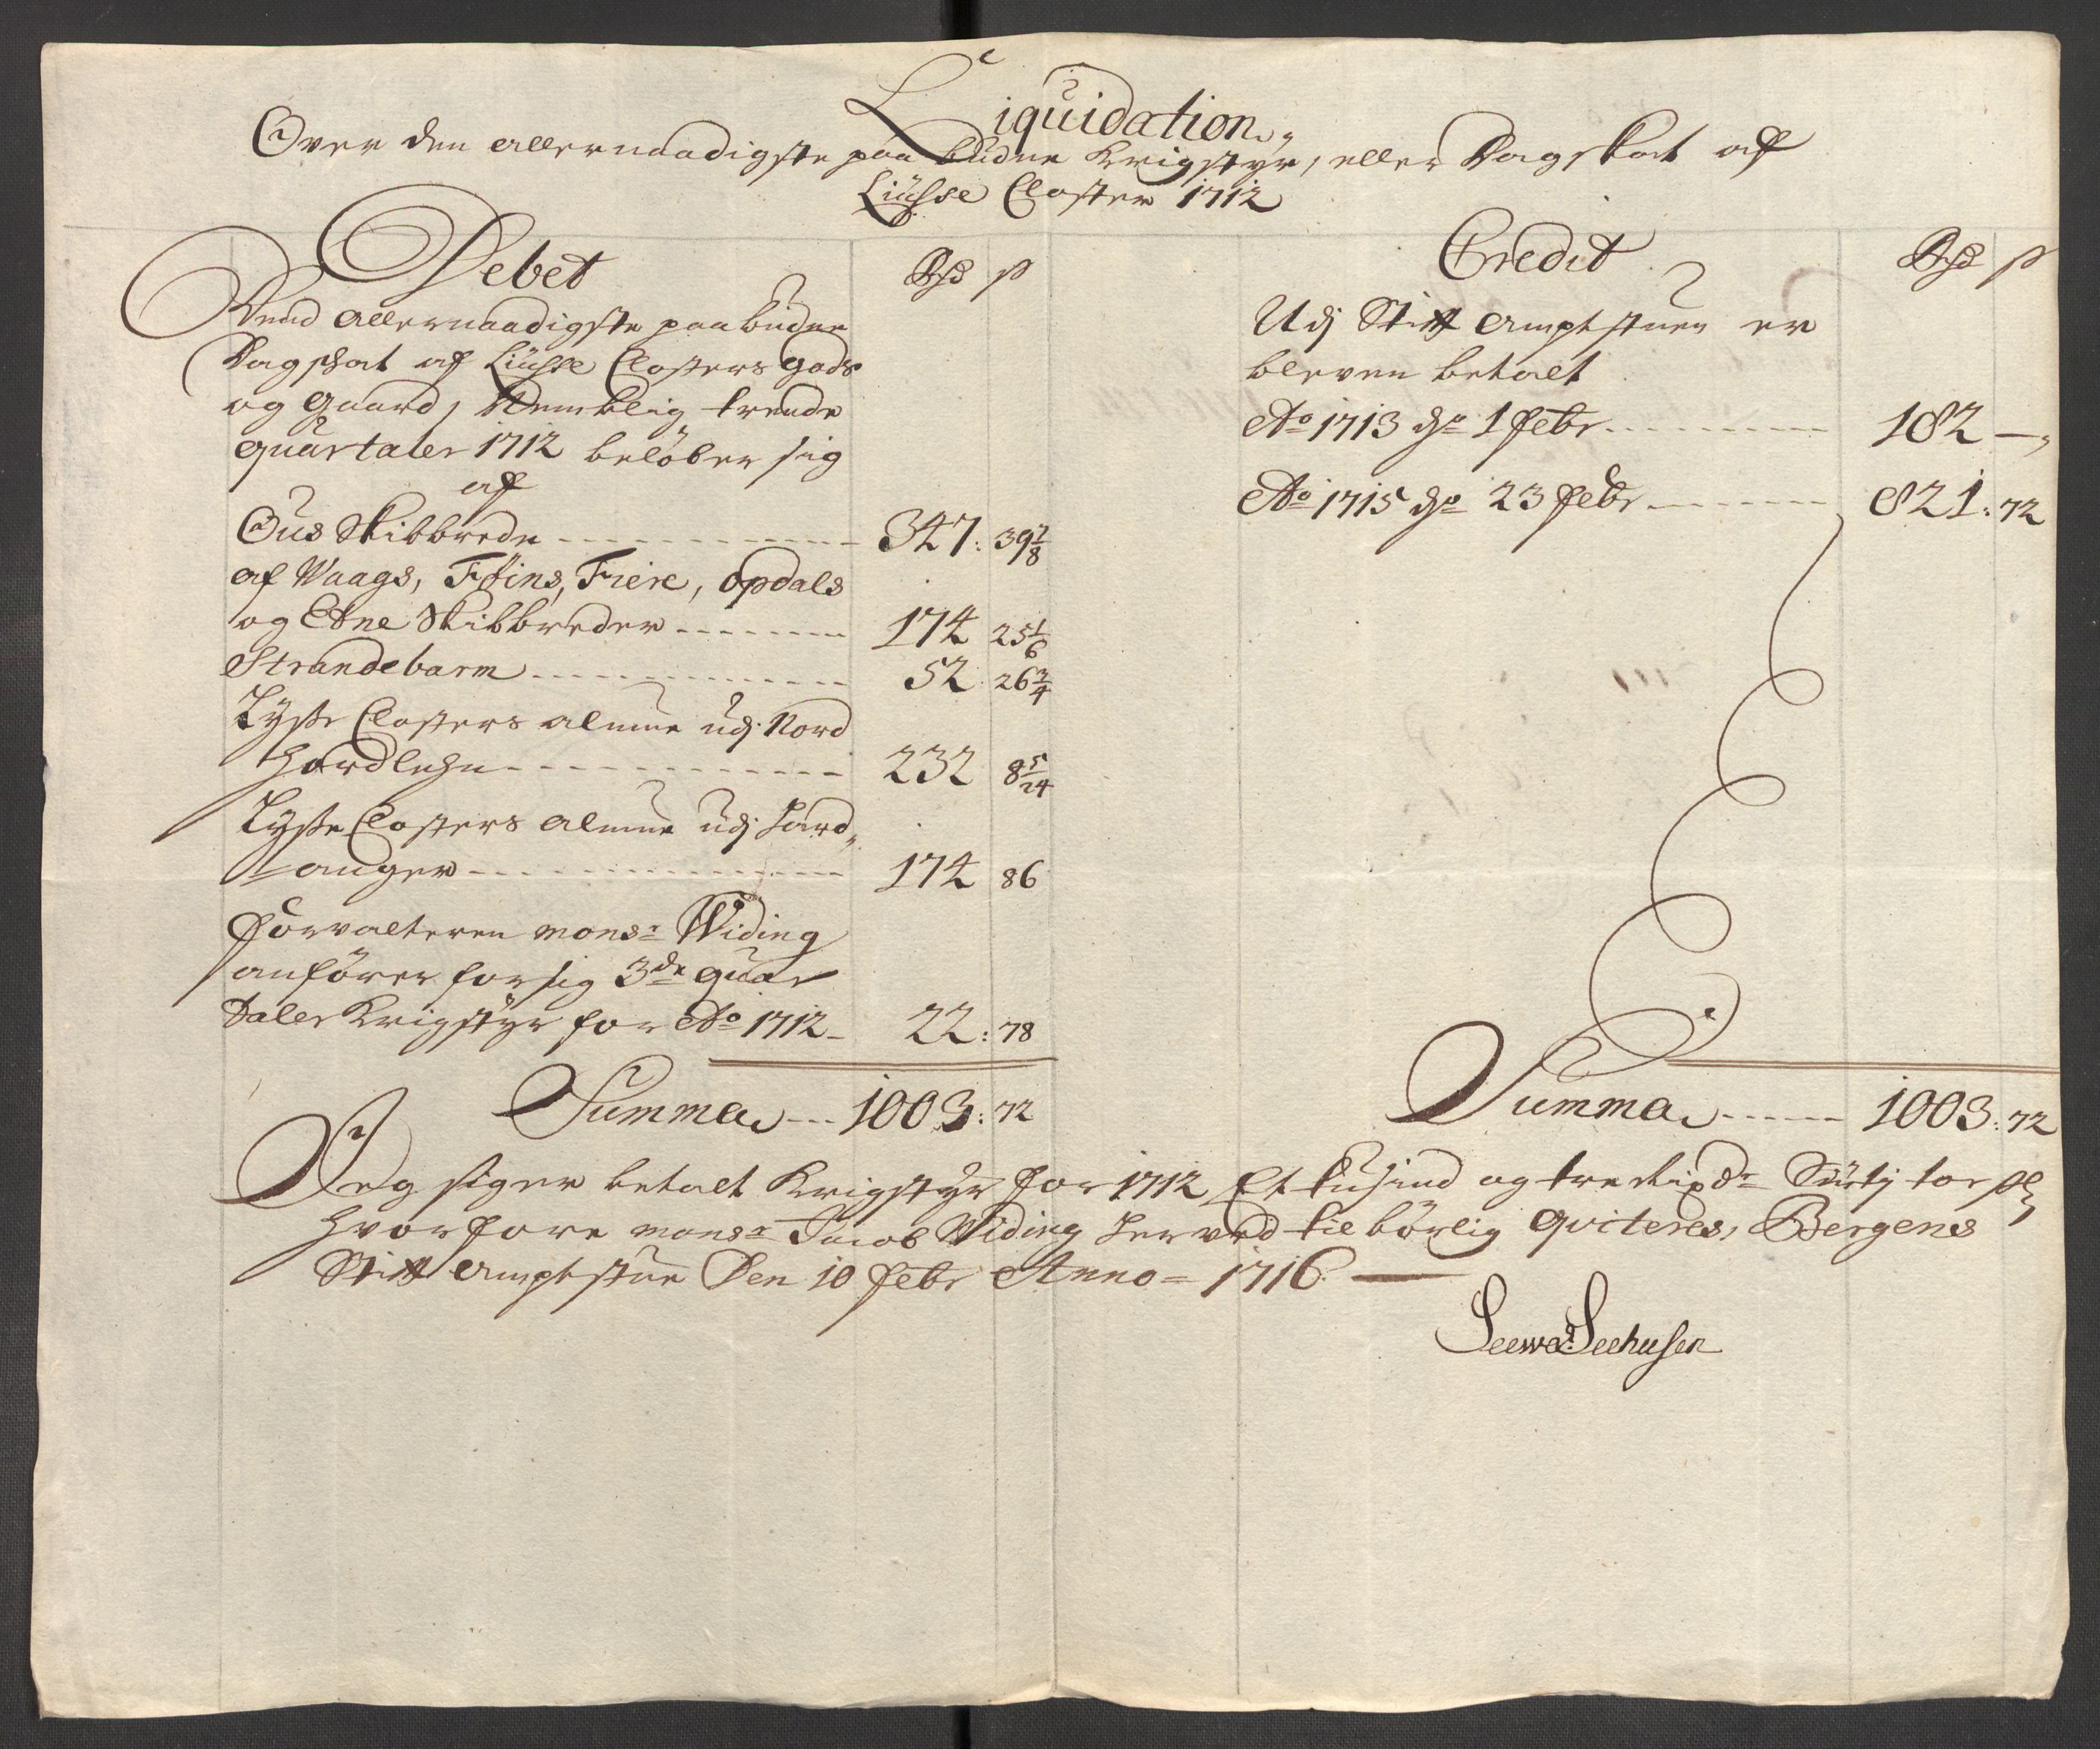 Liquidation,
Over den allernaadigste paabudne Krigstyr, eller Dagskat af
Liüsse Closter 1712
Debet
Rdr ß
Dend allernaadigste paabudne
Dagskat af Liüsse Closters gods
og gaard, Nemblig trende
quartaler 1712 beløber sig
af
Ous Skibbrede 347: 39 7/8
af Waags, Fiöins, Fiere, Opdals
og Etne Skibbreder 174 25 1/6
Strandebarm 52 26 3/4
Lyste Closters almue udj Nord
Hordlehn 232 8 5/24
Lyste Closters almue udj Hard„
anger 174 86
Forvalteren monsr Widing
anfører for sig 3de quar
taler Krigstyr for Ao 1712 22: 78
Summa 1003: 72
Credit
Rdr ß
Udj Stift Amptstuen er
bleven betalt
Ao 1713 dn 1 Febr 182 —
Ao 1715 dn 23 Febr 821: 72
Summa 1003: 72
Jeg siger betalt Krigstyr for 1712 Et tusind og tre rixdr Sütj toe ß
hvorfore monsr Jacob Widing herved tilbørlig qviteres, Bergens
Stift Amptstue Den 10 Febr Anno 1716
Seewer Seehusen